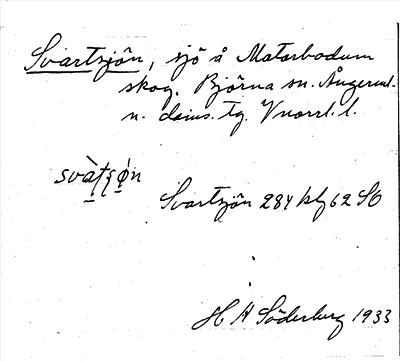 Svartsjön, sjö å Mätarbodum
skog. Björna sn. Ångerml.
n. doms. tg. Vnorrl. l.
svàʈʂǿn
Svartsjön 284 kbl 62 SO
H A Söderberg 1933